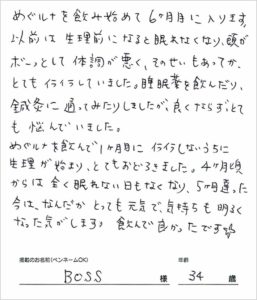 めぐルナを飲み始めて6ヶ月目に入ります。
以前は生理前になると眠れなくなり、頭が
ボーッとして体調が悪く、そのせいもあってか、
とてもイライラしていました。睡眠薬を飲んだり、
鍼灸に通ってみたりしましたが、良くならず、とて
も悩んでいました。
めぐルナを飲んで1ヶ月目にイライラしないうちに
生理が始まり、とてもおどろきました。4ヶ月頃
からは全く眠れない日もなくなり、5ヶ月違った
今は、なんだかとっても元気で、気持ちも明るく
なった気がします♪ 飲んで良かったです
掲載のお名前(ペンネームOK) 年齢
BOSS 様 34 歳